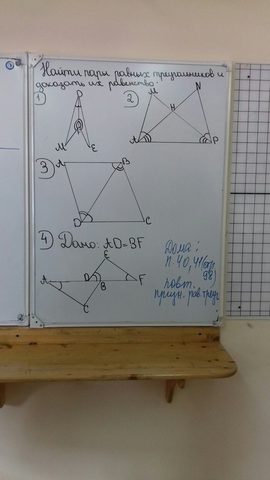 Найти пары равных треугольников и
доказать их равенство:
1)
D
M
E
2)
M
N
H
A
P
3)
A
B
D
C
4) Дано: AD=BF
E
A
D
B
F
C
Дома:
п. 40, 41 (стр
98)
повт.
призн. рав. треуг.